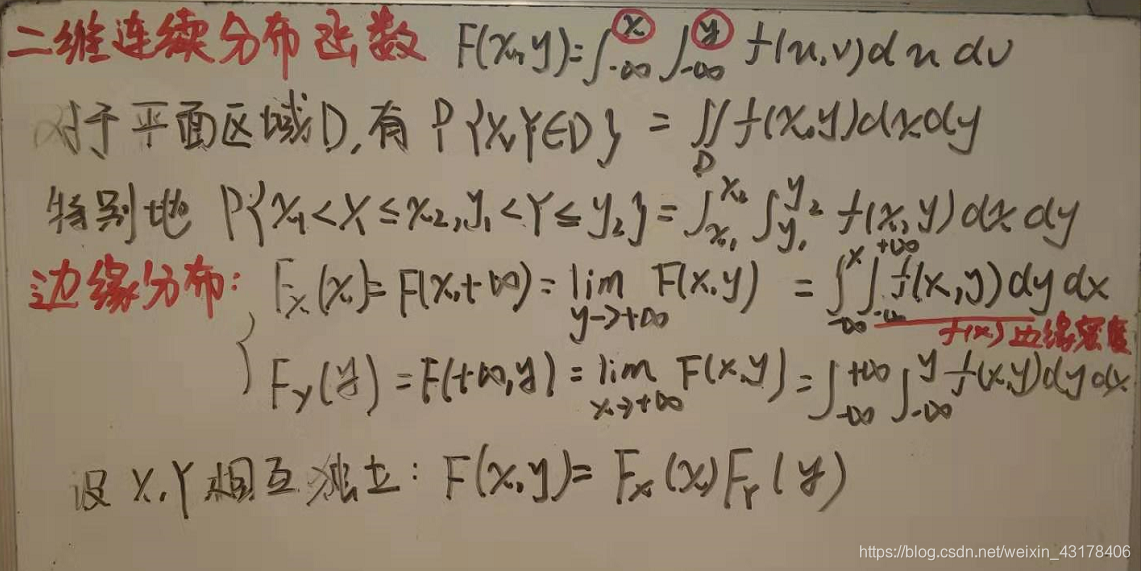 二维连续分布函数 F(x,y)=∫_{-∞}^{x}∫_{-∞}^{y} f(u,v)dudv
对于平面区域D,有 P{X,Y∈D} = ∬_D f(x,y)dxdy
特别地 P{x₁<X≤x₂,y₁<Y≤y₂}=∫_{x₁}^{x₂}∫_{y₁}^{y₂} f(x,y)dxdy
边缘分布: { F_X(x)=F(x,+∞)=lim_{y→+∞} F(x,y) =∫_{-∞}^{x}∫_{-∞}^{+∞} f(x,y)dydx
f(x)边缘密度
F_Y(y)=F(+∞,y)=lim_{x→+∞} F(x,y)=∫_{-∞}^{+∞}∫_{-∞}^{y} f(x,y)dydx
设X,Y相互独立: F(x,y)=F_X(x)F_Y(y)
https://blog.csdn.net/weixin_43178406